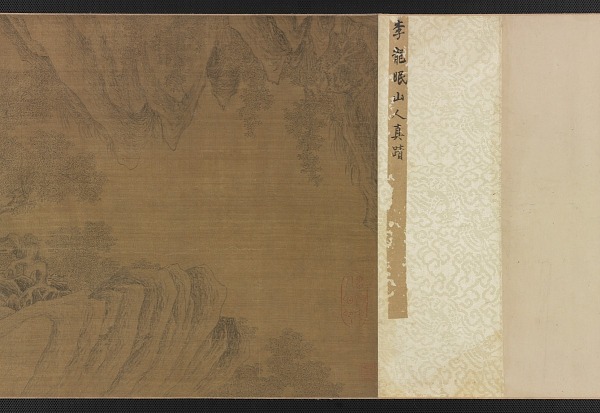 李龍眠山人真蹟